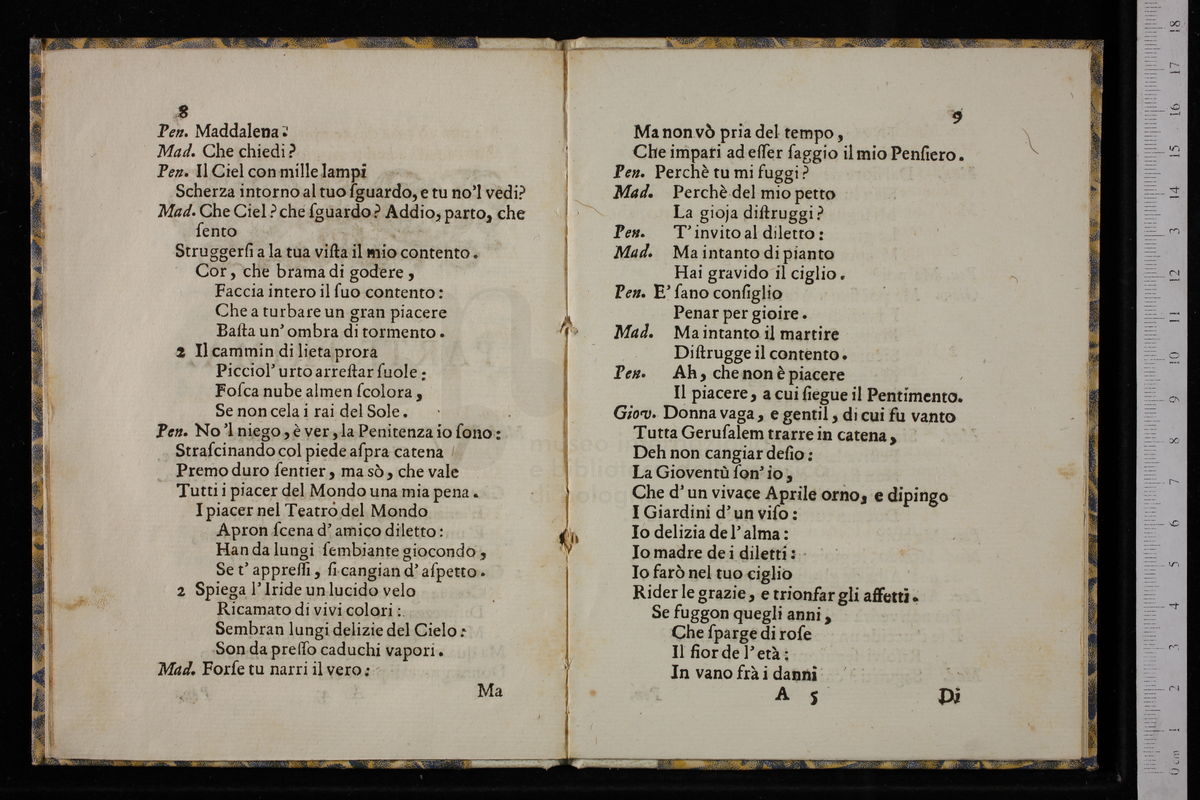 8
Pen. Maddalena?
Mad. Che chiedi?
Pen. Il Ciel con mille lampi
Scherza intorno al tuo ſguardo, e tu no'l vedi?
Mad. Che Ciel? che ſguardo? Addio, parto, che
ſento
Struggerſi a la tua viſta il mio contento.
Cor, che brama di godere,
Faccia intero il ſuo contento:
Che a turbare un gran piacere
Baſta un' ombra di tormento.
2 Il cammin di lieta prora
Picciol' urto arreſtar ſuole:
Foſca nube almen ſcolora,
Se non cela i rai del Sole.
Pen. No'l niego, è ver, la Penitenza io ſono:
Straſcinando col piede aſpra catena
Premo duro ſentier, ma sò, che vale
Tutti i piacer del Mondo una mia pena.
I piacer nel Teatro del Mondo
Apron ſcena d' amico diletto:
Han da lungi ſembiante giocondo,
Se t' appreſſi, ſi cangian d' aſpetto.
2 Spiega l' Iride un lucido velo
Ricamato di vivi colori:
Sembran lungi delizie del Cielo:
Son da preſſo caduchi vapori.
Mad. Forſe tu narri il vero:
Ma
9
Ma non vò pria del tempo,
Che impari ad eſſer ſaggio il mio Penſiero.
Pen. Perchè tu mi fuggi?
Mad. Perchè del mio petto
La gioja diſtruggi?
Pen. T' invito al diletto:
Mad. Ma intanto di pianto
Hai gravido il ciglio.
Pen. E' ſano conſiglio
Penar per gioire.
Mad. Ma intanto il martire
Diſtrugge il contento.
Pen. Ah, che non è piacere
Il piacere, a cui ſiegue il Pentimento.
Giov. Donna vaga, e gentil, di cui fu vanto
Tutta Geruſalem trarre in catena,
Deh non cangiar deſio:
La Gioventù ſon' io,
Che d' un vivace Aprile orno, e dipingo
I Giardini d' un viſo:
Io delizia de l' alma:
Io madre de i diletti:
Io farò nel tuo ciglio
Rider le grazie, e trionfar gli affetti.
Se fuggon quegli anni,
Che ſparge di roſe
Il fior de l' età:
In vano frà i danni
A 5
Di